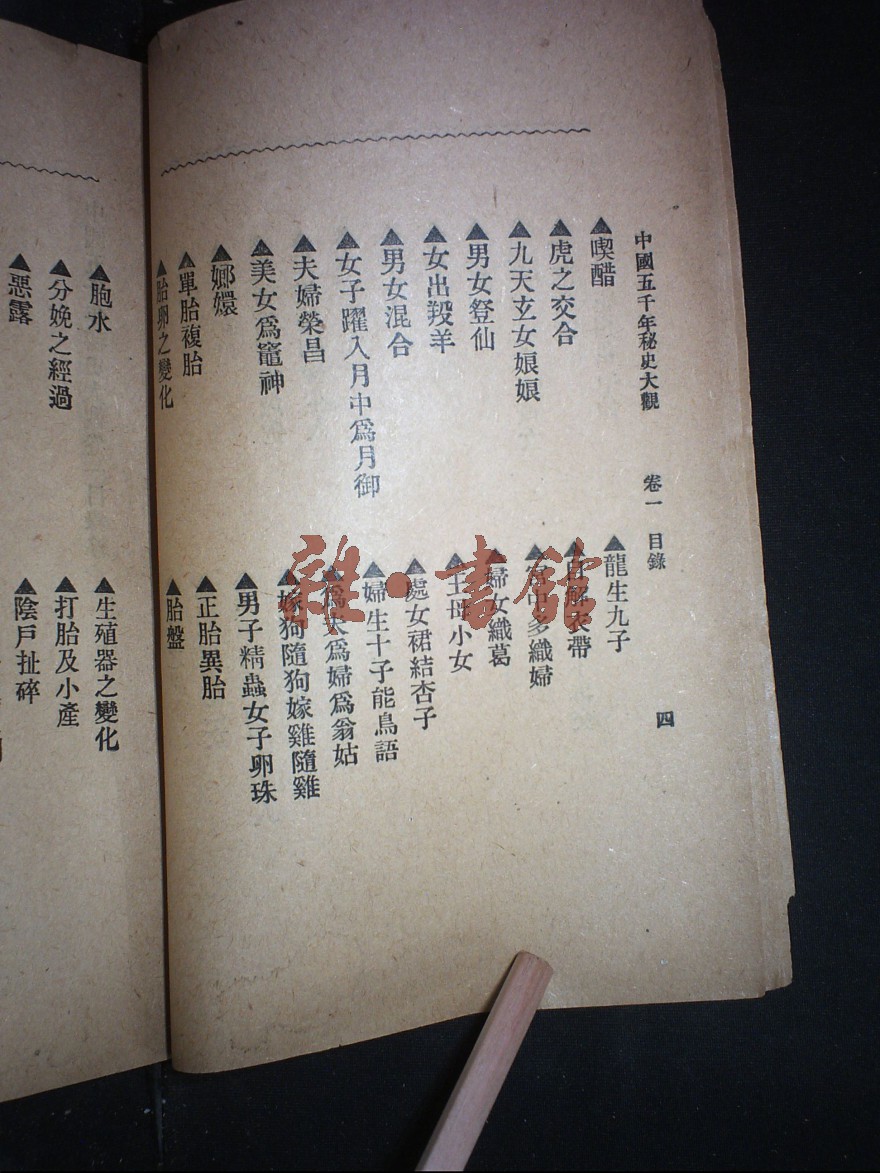 中國五千年秘史大觀 卷一 目錄 四
▲喫醋
▲龍生九子
▲虎之交合
▲自解衣帶
▲九天玄女娘娘
▲宮中多織婦
▲男女登仙
▲婦女織葛
▲女出羖羊
▲王母小女
▲男女混合
▲處女裙結杏子
▲女子躍入月中爲月御
▲婦生十子能鳥語
▲夫婦榮昌
▲爲夫爲婦爲翁姑
▲美女爲竈神
▲嫁狗隨狗嫁雞隨雞
▲嫏嬛
▲男子精蟲女子卵珠
▲單胎複胎
▲正胎異胎
▲胎卵之變化
▲胎盤
▲胞水
▲生殖器之變化
▲分娩之經過
▲打胎及小產
▲惡露
▲陰戶扯碎
雜·書館